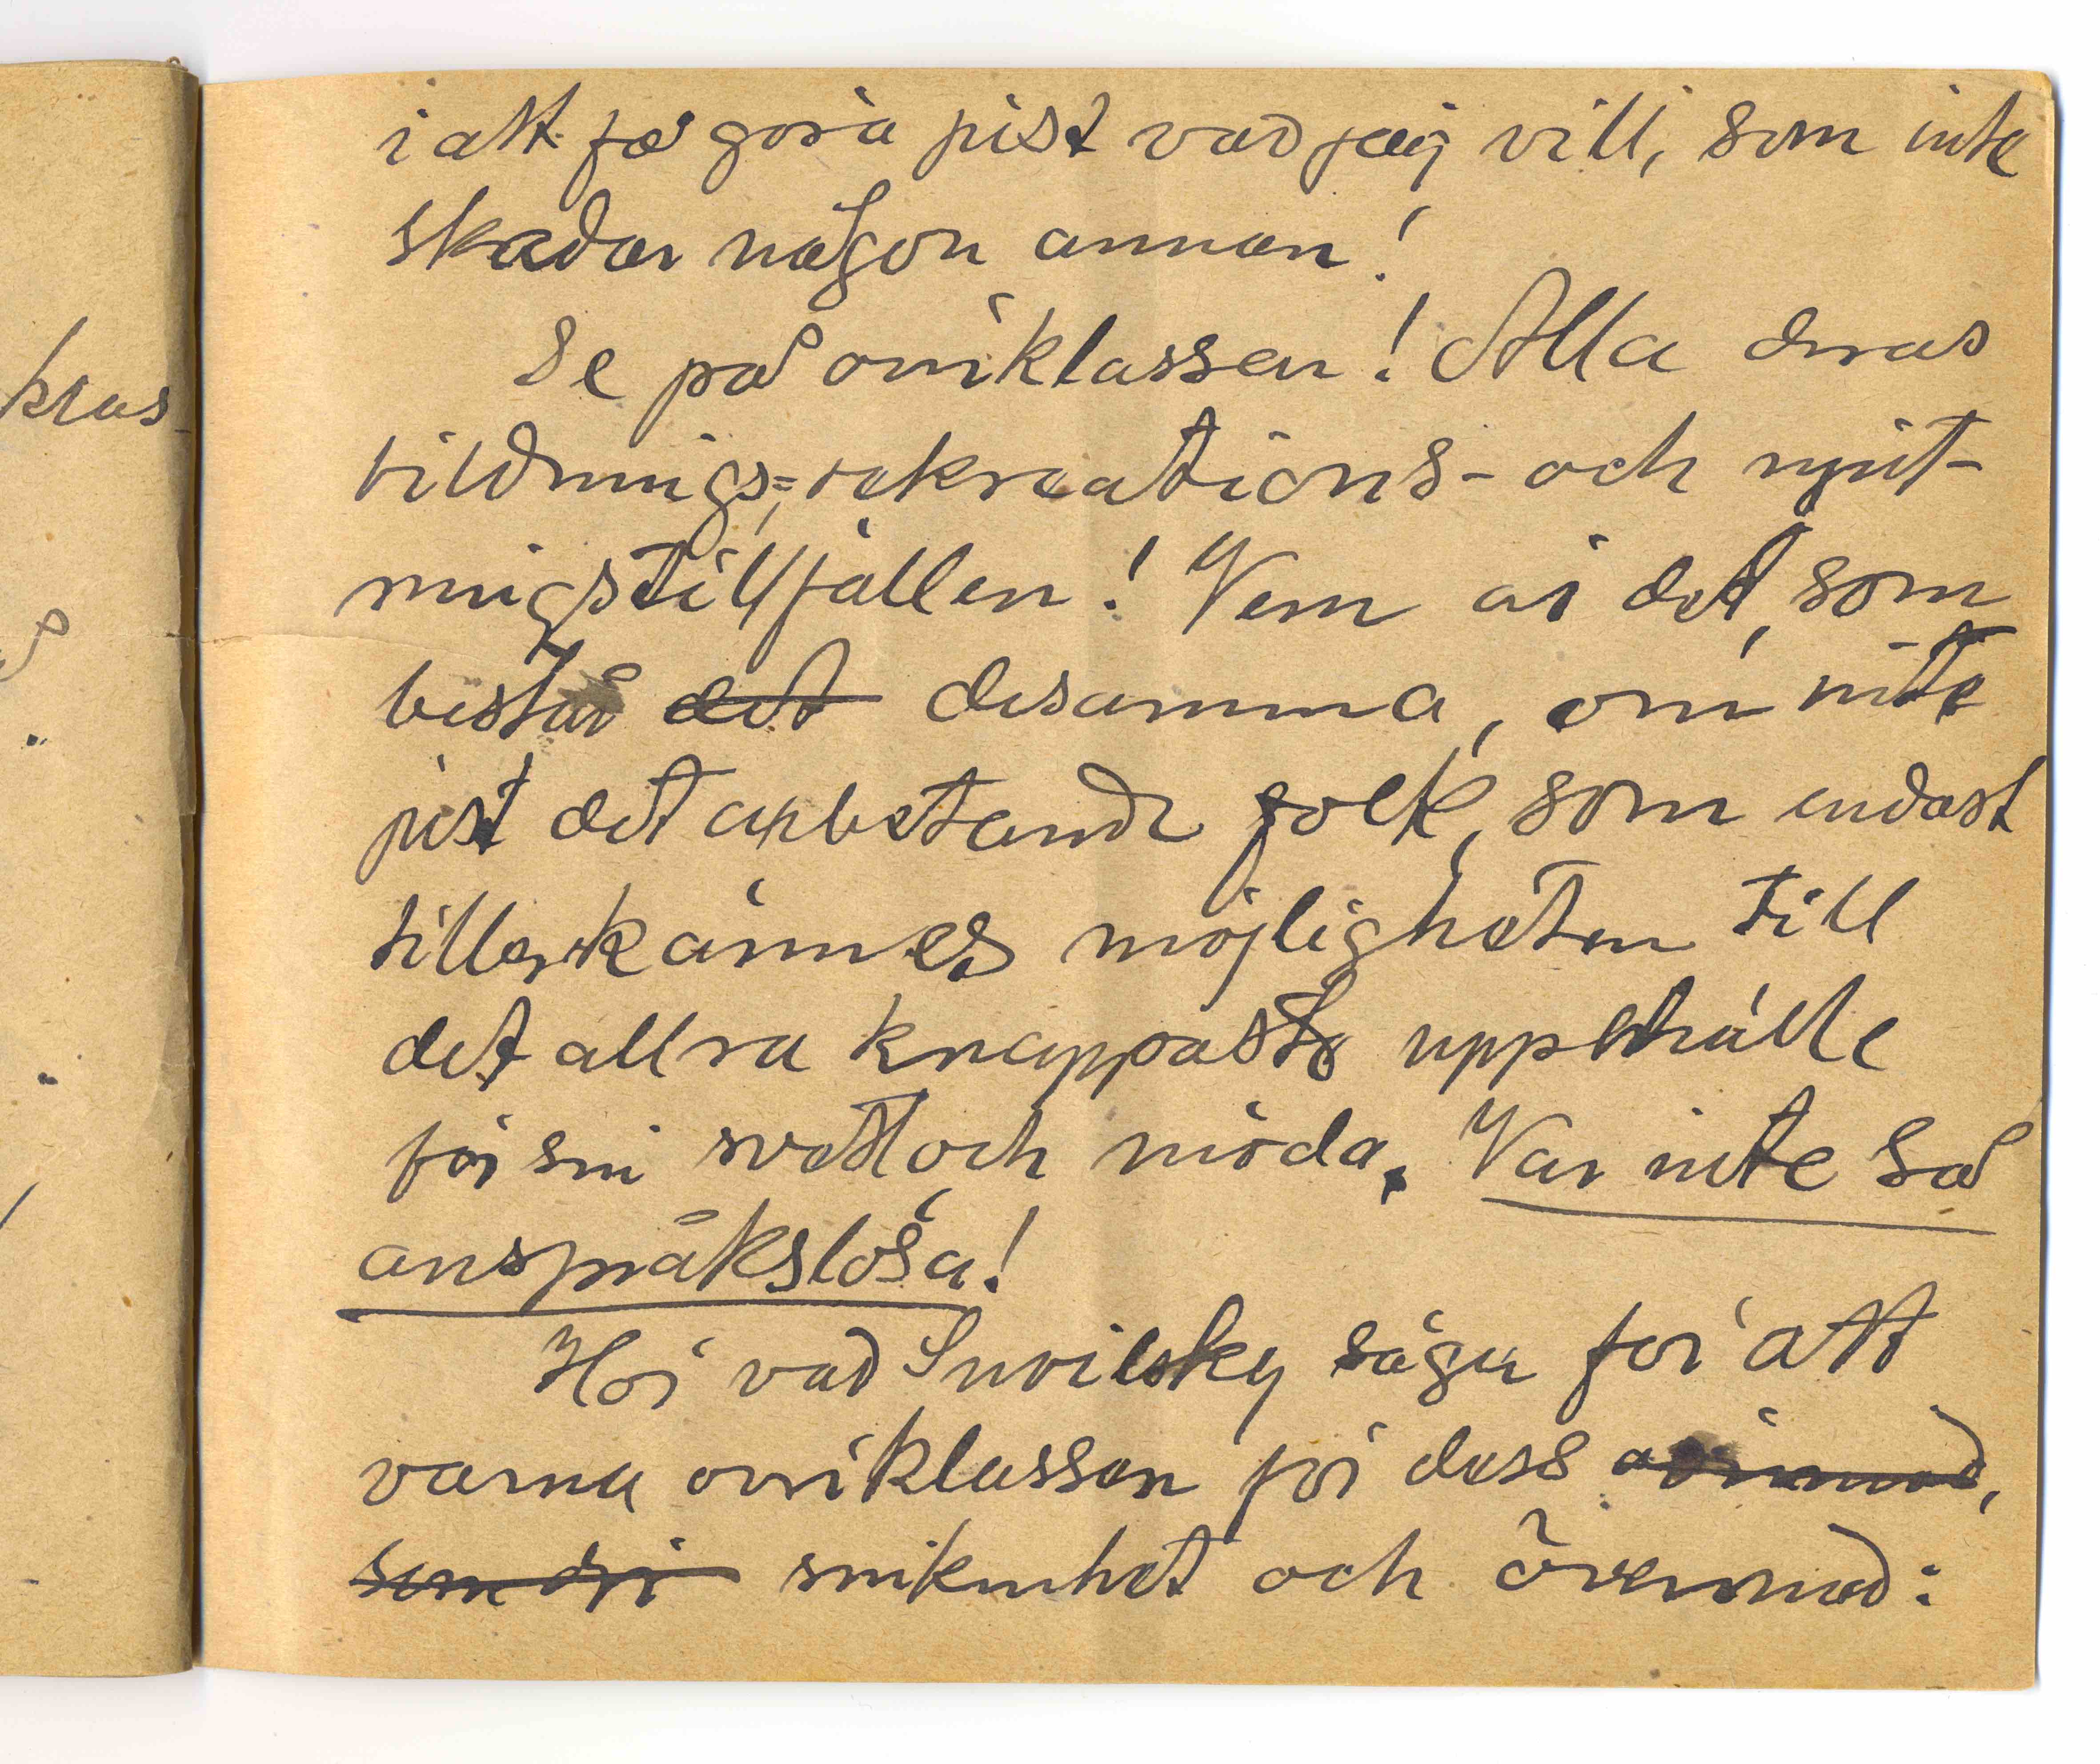 i att få göra just vad jag vill, som inte
skadar någon annan!
Se på överklassen! Alla deras
bildnings-, rekreations- och njut-
ningstillfällen! Vem är det, som
består det desamma, om inte
just det arbetande folk, som endast
tillerkännes möjligheten till
det allra knappaste uppehälle
för sin svett och möda. Var inte så
anspråkslösa!
Hör vad Snoilsky säger för att
varna överklassen för dess
som dri snikenhet och övermod:
kras-